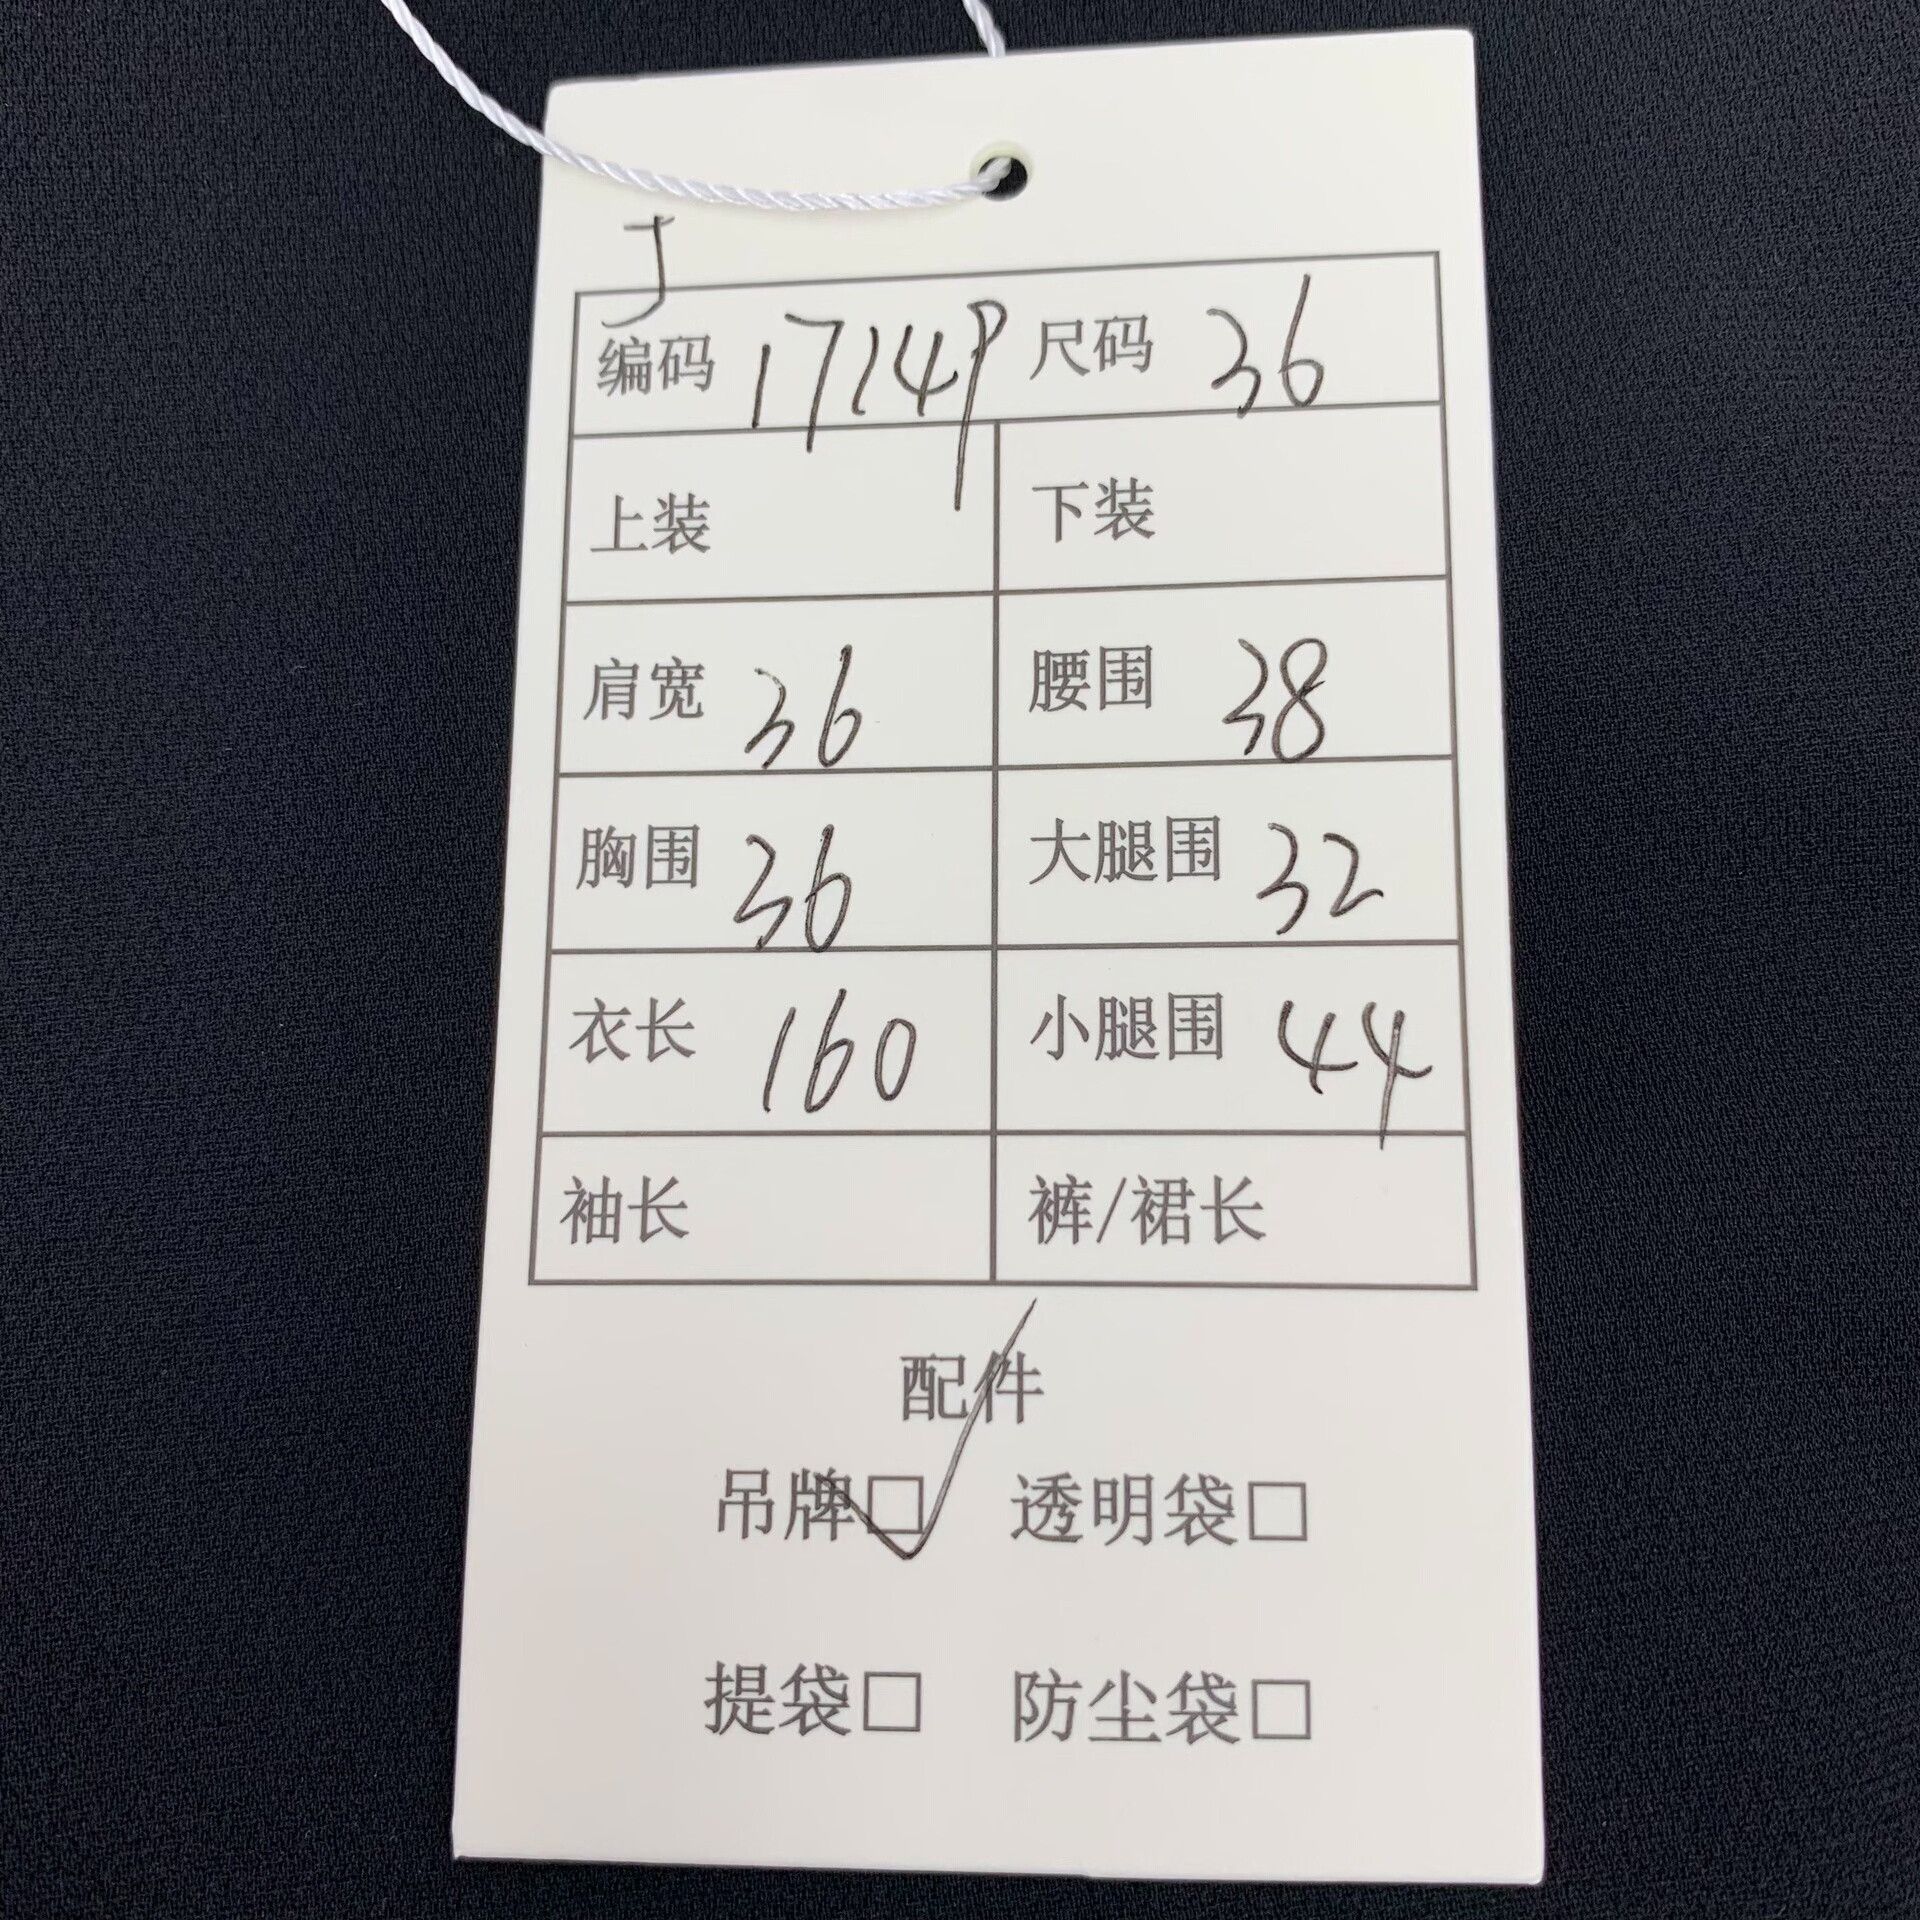 J
编码 17149 尺码 36
上装 下装
肩宽 36 腰围 38
胸围 36 大腿围 32
衣长 160 小腿围 44
袖长 裤/裙长
配件
吊牌□ 透明袋□
提袋□ 防尘袋□